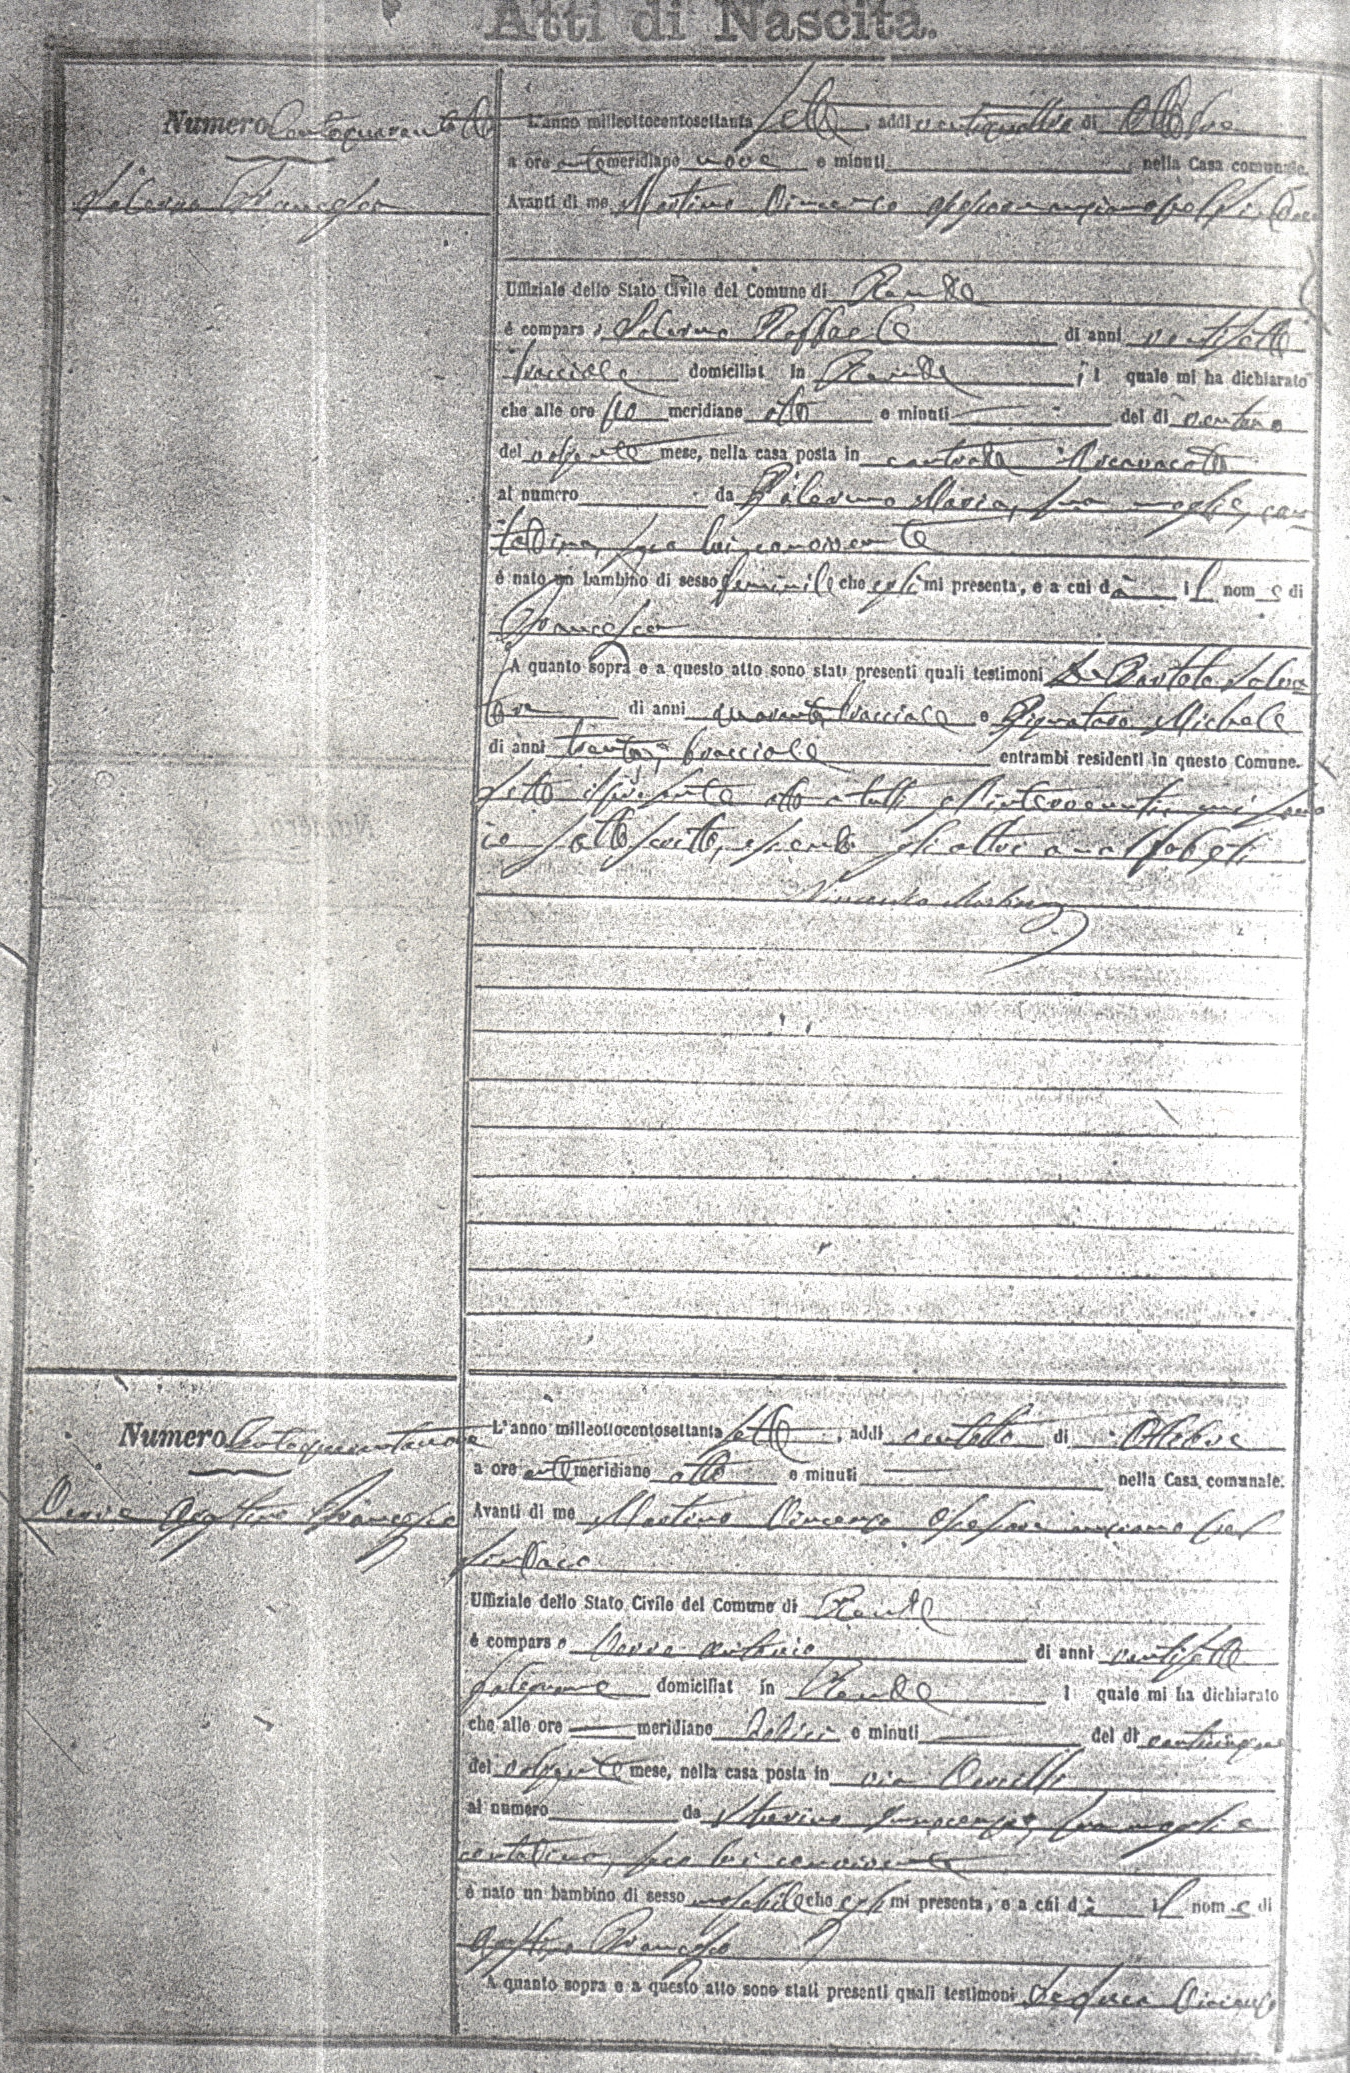 Atti di Nascita.
Numero Centoquarantotto
Salerno Francesca
L'anno milleottocentosettanta sette, addi ventiquattro di Ottobre
a ore antemeridiane nove e minuti nella Casa comunale.
Avanti di me Martino Vincenzo Assessore anziano pel Sindaco
Uffiziale dello Stato Civile del Comune di Rende
è comparso Salerno Raffaele di anni ventisette
bracciale domiciliat in Rende, il quale mi ha dichiarato
che alle ore po meridiane otto e minuti del dì ventuno
del volgente mese, nella casa posta in contrada
al numero da Maria, sua moglie, con
tadina, seco lui convivente
è nato un bambino di sesso feminile che egli mi presenta, e a cui dà il nome di
Francesca
A quanto sopra e a questo atto sono stati presenti quali testimoni De Bartolo Salva
tore di anni quaranta, bracciale e Pignataro Michele
di anni trenta, bracciale entrambi residenti in questo Comune.
Letto il presente atto a tutti gl'intervenuti, mi sono
io sottoscritto, essendo gli altri analfabeti
Vincenzo Martino
Numero Centoquarantanove
Agostino Francesco
L'anno milleottocentosettanta sette, addi ventotto di Ottobre
a ore antemeridiane otto e minuti nella Casa comunale.
Avanti di me Martino Vincenzo Assessore anziano pel
Sindaco
Uffiziale dello Stato Civile del Comune di Rende
è comparso Antonio di anni ventisette
falegname domiciliat in Rende l quale mi ha dichiarato
che alle ore meridiane dodici e minuti del dì venticinque
del volgente mese, nella casa posta in via
al numero da Innocenza, sua moglie
contadina, seco lui convivente
è nato un bambino di sesso maschile che egli mi presenta, e a cui dà il nome di
Agostino Francesco
A quanto sopra e a questo atto sono stati presenti quali testimoni De Luca Vincenzo